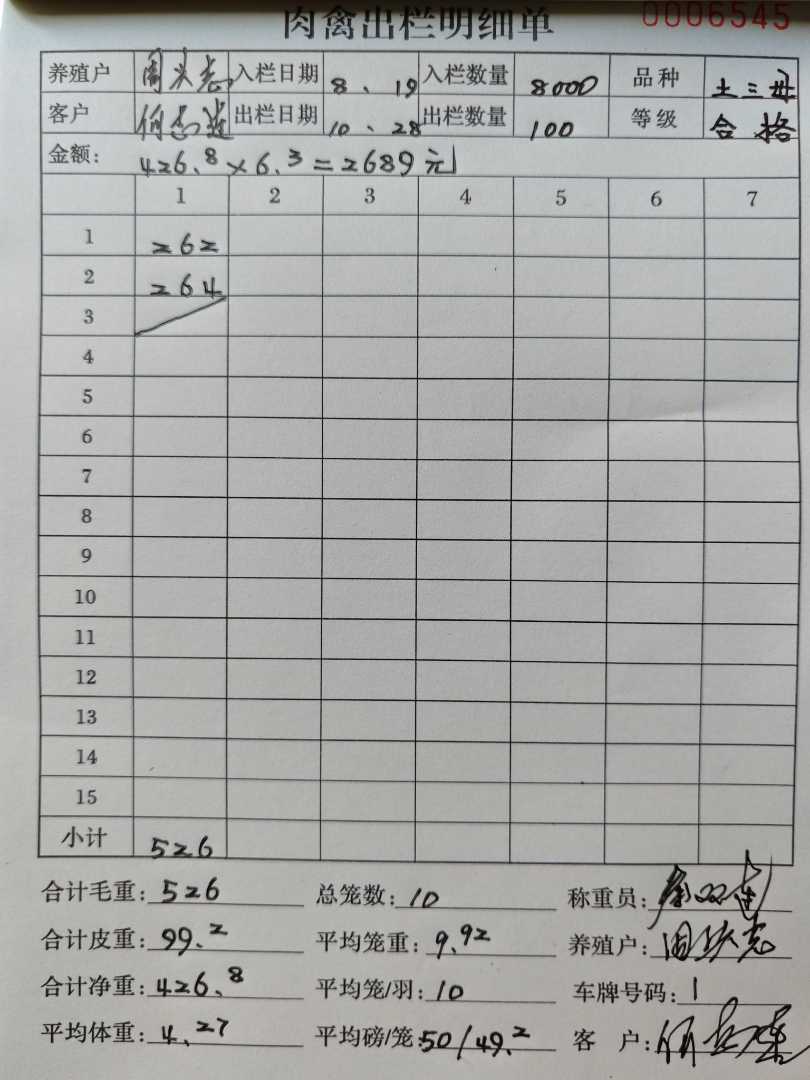 肉禽出栏明细单 0006545
养殖户 入栏日期 8、19 入栏数量 8000 品种 土三母
客户 出栏日期 10、28 出栏数量 100 等级 合格
金额: 426.8×6.3=2689元
1 2 3 4 5 6 7
1 262
2 264
3
4
5
6
7
8
9
10
11
12
13
14
15
小计 526
合计毛重: 526 总笼数: 10 称重员:
合计皮重: 99.2 平均笼重: 9.92 养殖户:
合计净重: 426.8 平均笼/羽: 10 车牌号码: 1
平均体重: 4.27 平均磅/笼: 50/49.2 客 户: